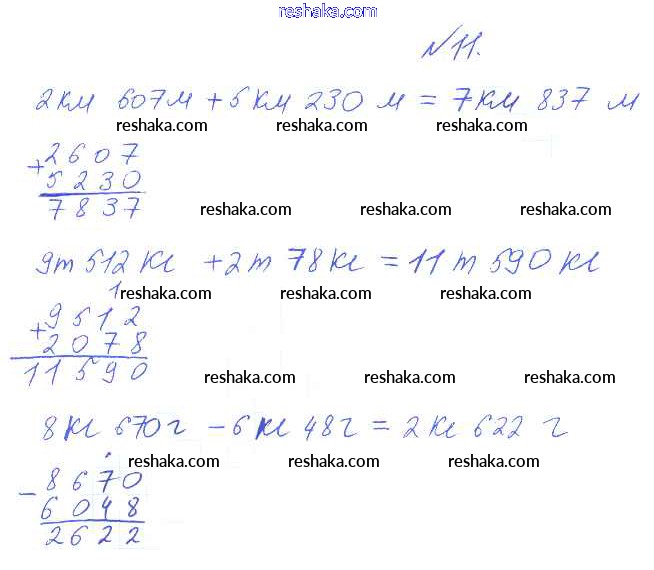 reshaka.com
№11.
2 км 607 м + 5 км 230 м = 7 км 837 м
reshaka.com reshaka.com reshaka.com
+ 2607
5230
7837
reshaka.com reshaka.com reshaka.com
9т 512 кг + 2 т 78 кг = 11 т 590 кг
1
reshaka.com reshaka.com reshaka.com
+ 9512
2078
11590
reshaka.com reshaka.com reshaka.com
8 кг 670 г - 6 кг 48 г = 2 кг 622 г
reshaka.com reshaka.com reshaka.com
- 8670
6048
2622
reshaka.com reshaka.com reshaka.com